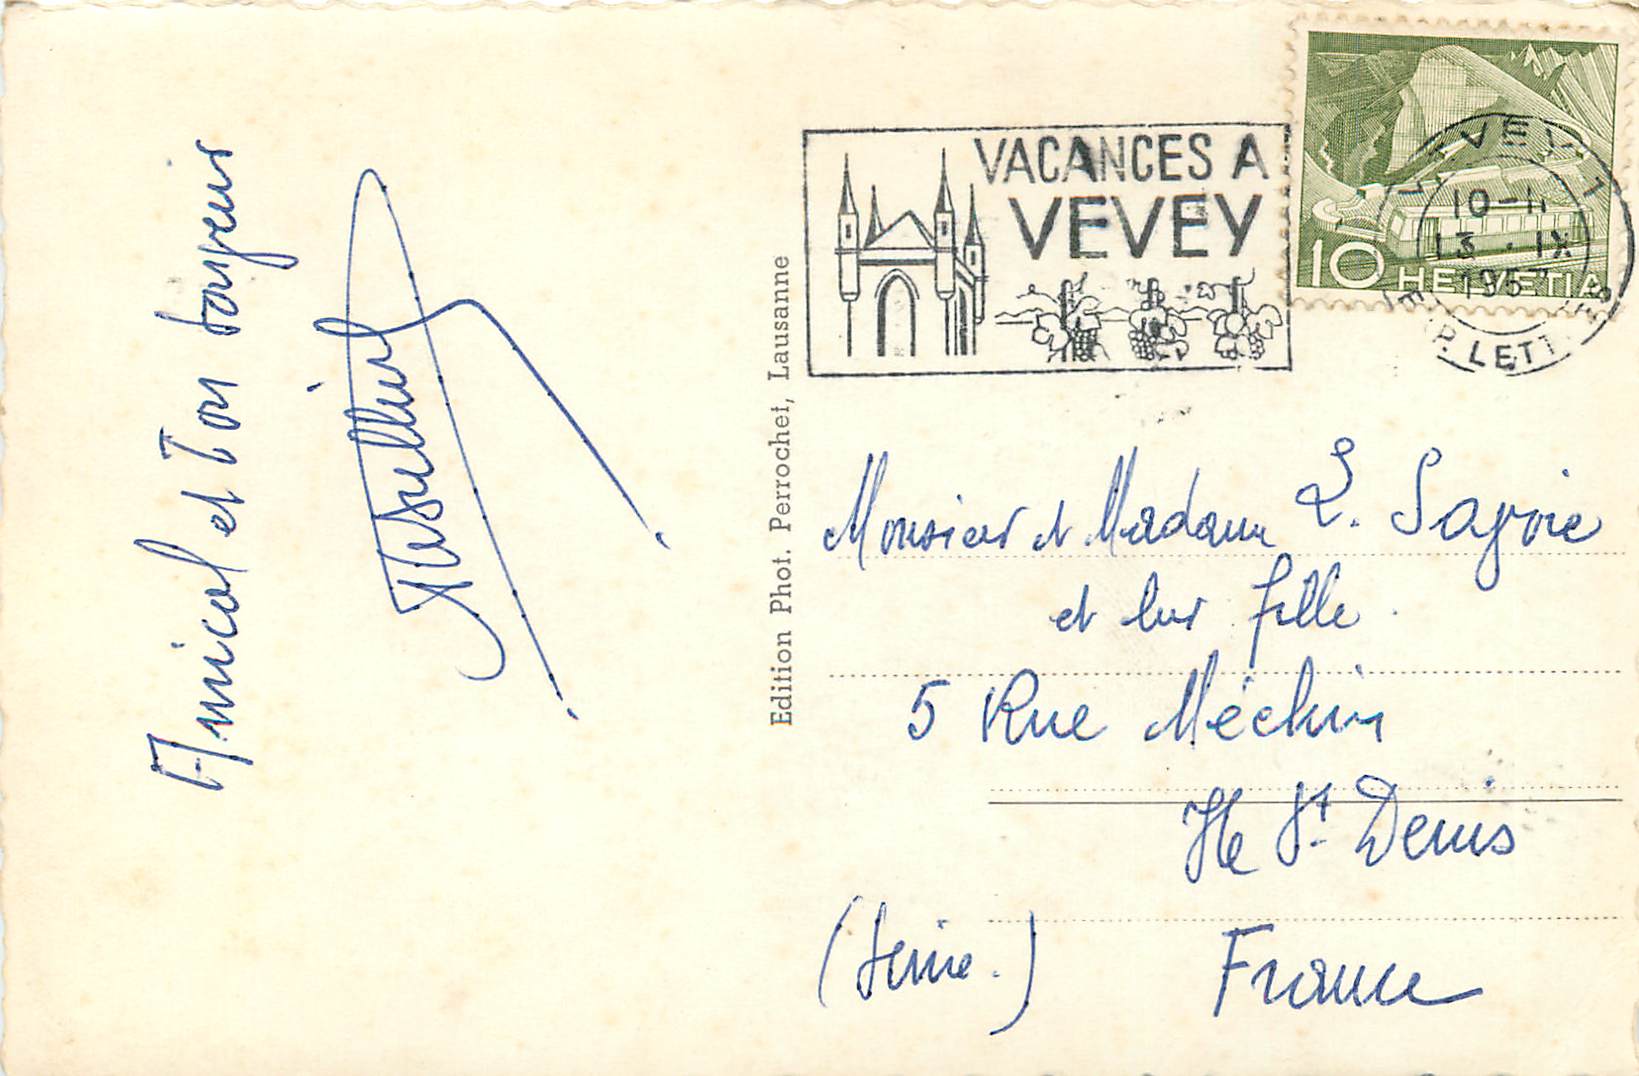 Amical et bon
Edition Phot. Perrochet, Lausanne
VACANCES A
VEVEY
10 HELVETIA
VEVEY 1
10-11
13 · IX
195
EXP. LETTRES
Monsieur et Madame L. Savoie
et leur fille.
5 Rue Méchin
Ile St. Denis
(Seine.) France